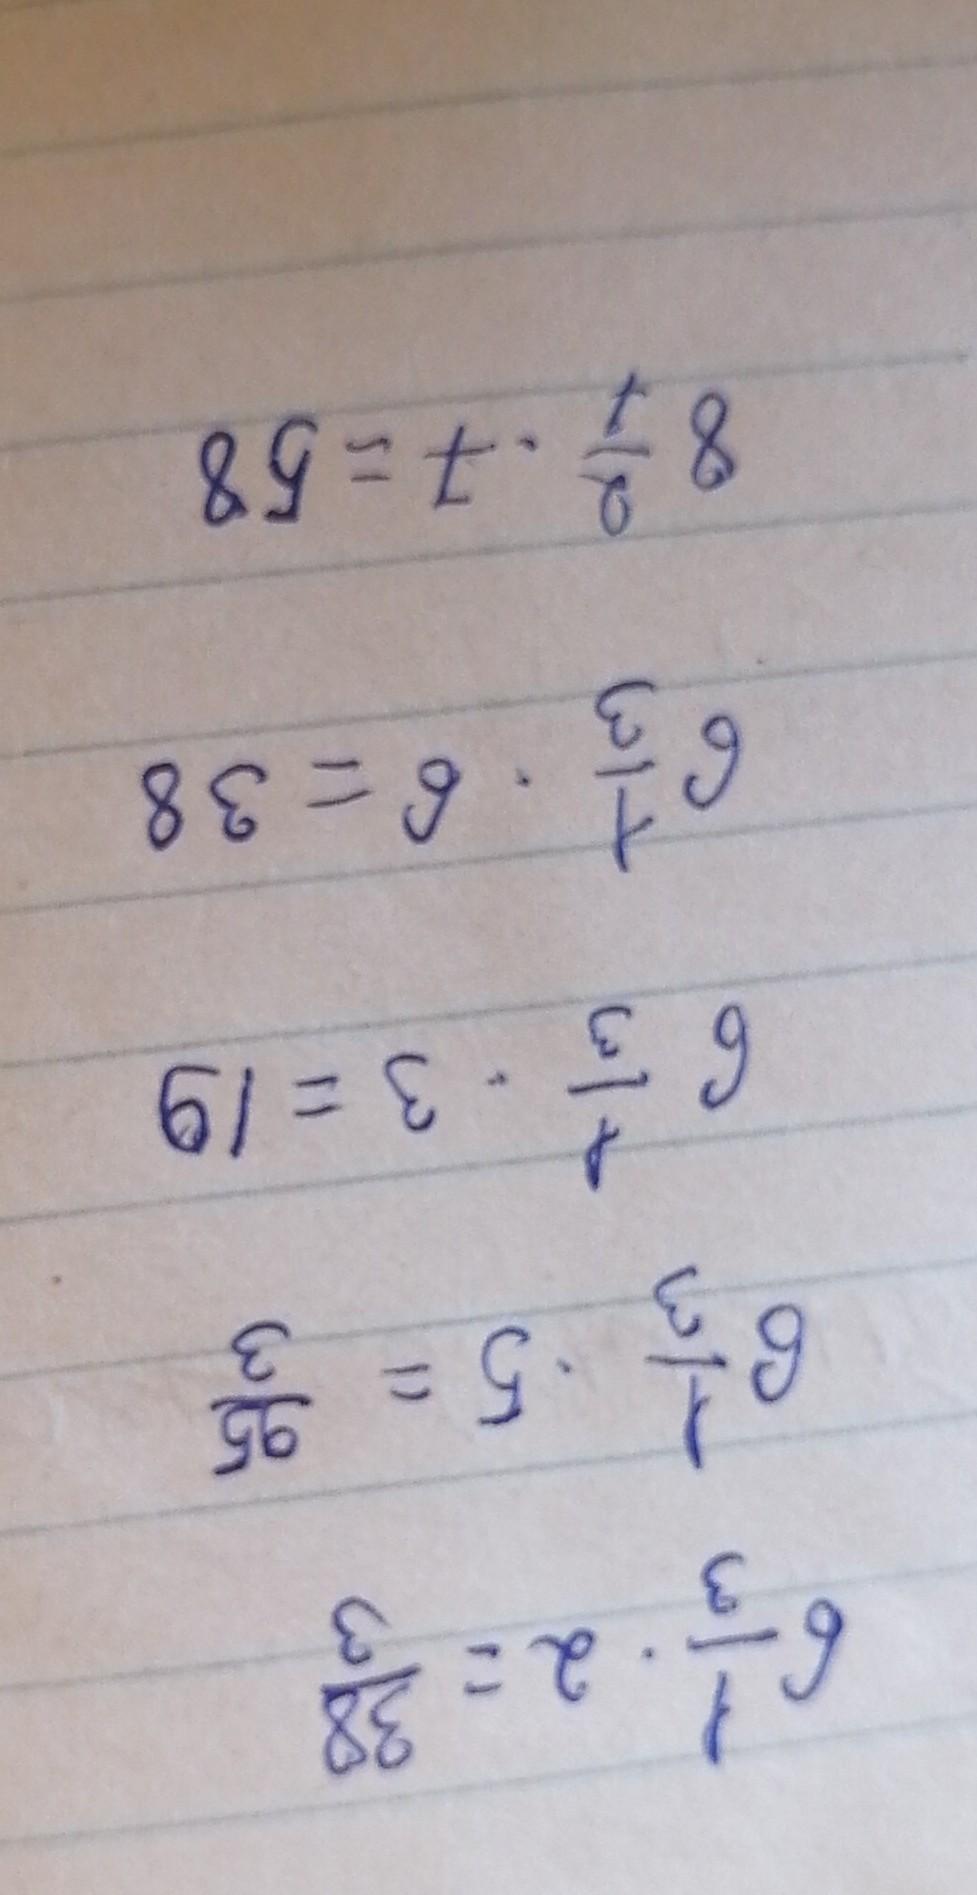 6 1/3 · 2 = 38/3
6 1/3 · 5 = 95/3
6 1/3 · 3 = 19
6 1/3 · 6 = 38
8 2/7 · 7 = 58